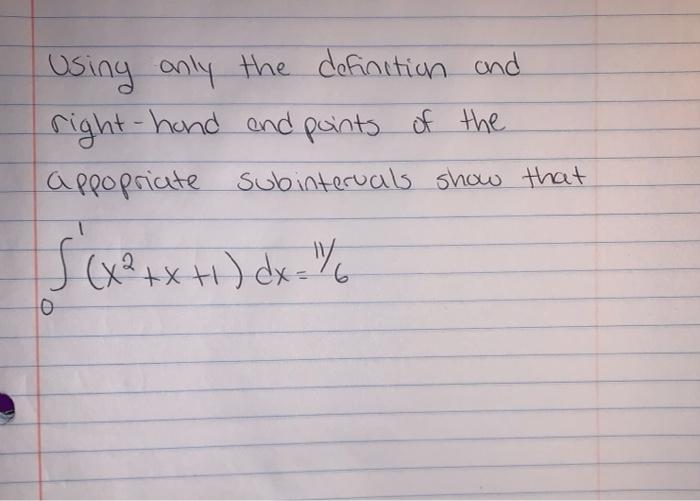 Using only the definition and
right-hand endpoints of the
appopriate subintervals show that
∫₀¹ (x² + x + 1) dx = 11/6